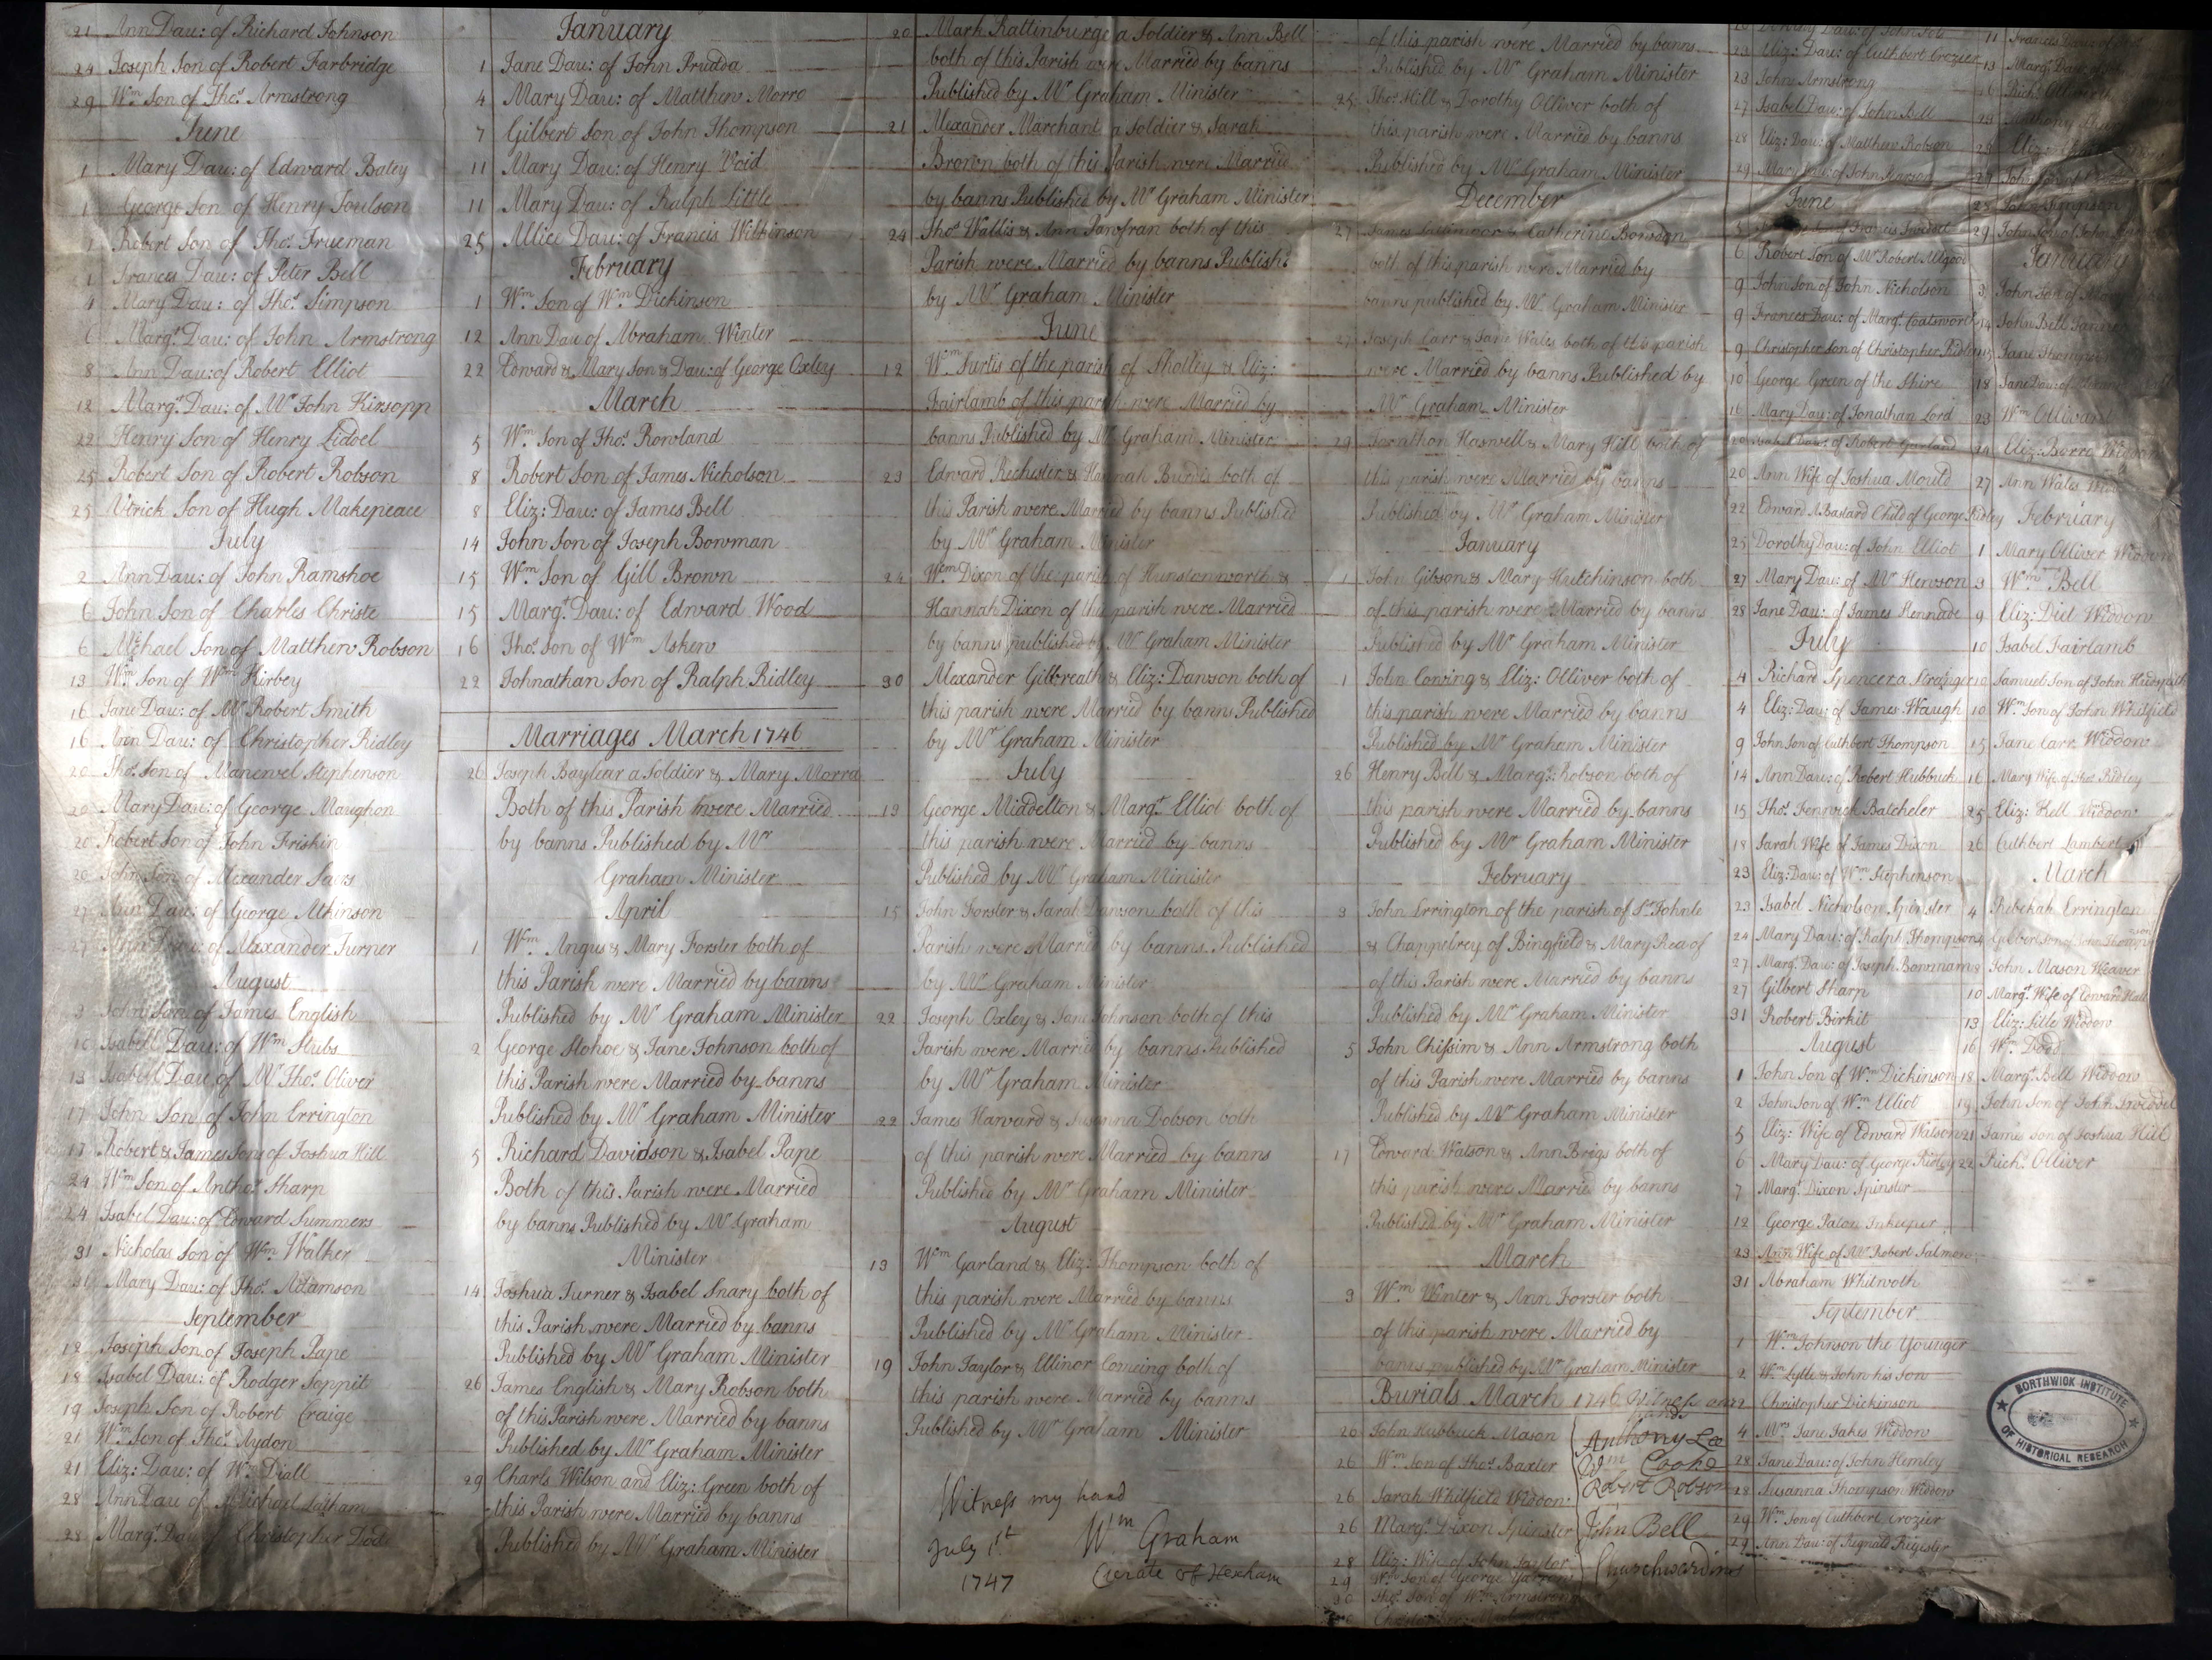 21 Ann Dau: of Richard Johnson
24 Joseph Son of Robert Farbridge
29 Wm Son of Thos. Armstrong
June
1 Mary Dau: of Edward Batey
1 George Son of Henry Soulson
1 Robert Son of Thos. Trueman
1 Frances Dau: of Peter Bell
4 Mary Dau: of Thos. Simpson
6 Margt. Dau: of John Armstrong
8 Ann Dau: of Robert Elliot
12 Margt. Dau: of Mr John Kirsopp
22 Henry Son of Henry Liddel
25 Robert Son of Robert Robson
25 Utrick Son of Hugh Makepeace
July
2 Ann Dau: of John Ramshoe
6 John Son of Charles Christe
6 Michael Son of Matthew Robson
13 Wm Son of Wm Kirbey
16 Jane Dau: of Mr Robert Smith
16 Ann Dau: of Christopher Ridley
20 Thos. Son of Manewel Stephenson
20 Mary Dau: of George Maughon
20 Robert Son of John Friskin
20 John Son of Alexander
27 Ann Dau: of George Atkinson
27 Dau: of Alexander Turner
August
3 John Son of James English
10 Isabell Dau: of Wm Stubs
13 Isabel Dau of Mr Thos. Oliver
17 John Son of John Errington
17 Robert & James Sons of Joshua Hill
24 Wm Son of Anthos. Sharp
24 Isabel Dau: of Edward Summers
31 Nicholas Son of Wm Walker
31 Mary Dau: of Thos. Adamson
September
12 Joseph Son of Joseph Pape
18 Isabel Dau: of Rodger Soppit
19 Joseph Son of Robert Craige
21 Wm Son of Thos. Aydon
21 Eliz: Dau: of Wm Diall
28 Ann Dau of Michael Latham
28 Margt. Dau of Christopher
January
1 Jane Dau: of John Prudda
4 Mary Dau: of Matthew Morro
7 Gilbert Son of John Thompson
11 Mary Dau: of Henry Void
11 Mary Dau: of Ralph Little
25 Allice Dau: of Francis Wilkinson
February
1 Wm Son of Wm Dickinson
12 Ann Dau of Abraham Winter
22 Edward & Mary Son & Dau: of George Oxley
March
5 Wm Son of Thos. Rowland
8 Robert Son of James Nicholson
8 Eliz: Dau: of James Bell
14 John Son of Joseph Bowman
15 Wm Son of Gill Brown
15 Margt. Dau: of Edward Wood
16 Thos. Son of Wm Askew
22 Johnathan Son of Ralph Ridley
Marriages March 1746
26 Joseph Baylear a Soldier & Mary Morra
Both of this Parish were Married
by banns Published by Mr
Graham Minister
April
1 Wm Angus & Mary Forster both of
this Parish were Married by banns
Published by Mr Graham Minister
2 George Stohoe & Jane Johnson both of
this Parish were Married by banns
Published by Mr Graham Minister
5 Richard Davidson & Isabel Pape
Both of this Parish were Married
by banns Published by Mr Graham
Minister
14 Joshua Turner & Isabel Snary both of
this Parish were Married by banns
Published by Mr Graham Minister
26 James English & Mary Robson both
of this Parish were Married by banns
Published by Mr Graham Minister
29 Charls Wilson and Eliz: Green both of
this Parish were Married by banns
Published by Mr Graham Minister
20 Mark Rattinburge a Soldier & Ann Bell
both of this Parish were Married by banns
Published by Mr Graham Minister
21 Alexander Marchant a Soldier & Sarah
Brown both of this Parish were Married
by banns Published by Mr Graham Minister
24 Thos. Wallis & Ann both of this
Parish were Married by banns Publish:
by Mr Graham Minister
June
12 Wm Surtis of the parish of Shotley & Eliz:
Fairlamb of this parish were Married by
banns Published by Mr Graham Minister
23 Edward Rechester & Hannah Burdis both of
this Parish were Married by banns Published
by Mr Graham Minister
24 Wm Dixon of the parish of Hunstonworth &
Hannah Dixon of this parish were Married
by banns published by Mr Graham Minister
30 Alexander Gilbreath & Eliz: Dawson both of
this parish were Married by banns Published
by Mr Graham Minister
July
13 George Middelton & Margt. Elliot both of
this parish were Married by banns
Published by Mr Graham Minister
15 John Forster & Sarah Dawson both of this
Parish were Married by banns Published
by Mr Graham Minister
22 Joseph Oxley & Jane Johnson both of this
Parish were Married by banns Published
by Mr Graham Minister
22 James Harvard & Susanna Dobson both
of this parish were Married by banns
Published by Mr Graham Minister
August
13 Wm Garland & Eliz: Thompson both of
this parish were Married by banns
Published by Mr Graham Minister
19 John Taylor & Ellinor Comeing both of
this parish were Married by banns
Published by Mr Graham Minister
Witness my hand
July 1st Wm Graham
1747 Curate of Hexham
of this parish were Married by banns
Published by Mr Graham Minister
25 Thos. Hill & Dorothy Olliver both of
this parish were Married by banns
Published by Mr Graham Minister
December
27 James & Catherine Bowden
both of this parish were Married by
banns published by Mr Graham Minister
27 Joseph Carr & Jane Wales both of this parish
were Married by banns Published by
Mr Graham Minister
29 Jornthon Haswell & Mary Hill both of
this parish were Married by banns
Published by Mr Graham Minister
January
1 John Gibson & Mary Hutchinson both
of this parish were Married by banns
Published by Mr Graham Minister
1 John Coming & Eliz: Olliver both of
this parish were Married by banns
Published by Mr Graham Minister
26 Henry Bell & Margt. Robson both of
this parish were Married by banns
Published by Mr Graham Minister
February
3 John Errington of the parish of St. Johnle
& Chappelrey of Bingfield & Mary Rea of
of this Parish were Married by banns
Published by Mr Graham Minister
5 John Chissim & Ann Armstrong both
of this Parish were Married by banns
Published by Mr Graham Minister
17 Edward Watson & Ann Brigs both of
this parish were Married by banns
Published by Mr Graham Minister
March
3 Wm Winter & Ann Forster both
of this parish were Married by
banns published by Mr Graham Minister
Burials March 1746 Witness our
hands
20 John Hubbuck Mason
26 Wm Son of Thos. Baxter
26 Sarah Whitfield Widdow
26 Margt. Dixon Spinster
28 Eliz: Wife of John Taylor
29 Wm Son of George
30 Thos. Son of Wm Armstrong
Anthony Lee
Wm Cooke
Robert Robson
John Bell
Churchwardins
23 Eliz: Dau: of Cuthbert Crozier
23 John Armstrong
27 Isabel Dau: of John Bell
28 Eliz: Dau: of Matthew Robson
29 Mary Dau: of John
June
6 Robert Son of Mr Robert Allgood
9 John Son of John Nicholson
9 Frances Dau: of Margt. Coatsworth
9 Christopher Son of Christopher Ridley
10 George Green of the Shire
16 Mary Dau: of Jonathan Lord
20 Isabel Dau: of Robert Garland
20 Ann Wife of Joshua Mould
22 Edward A Bastard Child of George Ridley
25 Dorothy Dau: of John Elliot
27 Mary Dau: of Mr Hewson
28 Jane Dau: of James Kennade
July
4 Richard Spencer a Stranger
4 Eliz: Dau: of James Waugh
9 John Son of Cuthbert Thompson
14 Ann Dau: of Robert Hubbuck
15 Thos. Fenwick Batcheler
18 Sarah Wife of James Dixon
23 Eliz: Dau: of Wm Stephenson
23 Isabel Nicholson Spinster
24 Mary Dau: of Ralph Thompson
27 Margt. Dau: of Joseph Bowman
27 Gilbert Sharp
31 Robert Birkit
August
1 John Son of Wm Dickinson
2 John Son of Wm Elliot
5 Eliz: Wife of Edward Watson
6 Mary Dau: of George Ridley
7 Margt. Dixon Spinster
12 George Paton Inkeeper
23 Ann Wife of Mr Robert Salmon
31 Abraham Whitwoth
September
1 Wm Johnson the Younger
2 Wm Lytle & John his Son
2 Christopher Dickinson
4 Mrs Jane Jakes Widdow
28 Jane Dau: of John Hemley
28 Susanna Thompson Widdow
29 Wm Son of Cuthbert Crozier
29 Ann Dau: of Regnald Register
11 Francis Dau: of
13 Margt. Dau:
16 Richd. Olliver
29 John Son of John
February
3 John Son of
14 John Bell Tanner
15 Jane Thompson
18 Jane Dau: of
23 Wm Ollivant
24 Eliz: Borro Widdow
27 Ann Wales Widdow
February
1 Mary Olliver Widdow
3 Wm Bell
9 Eliz: Diel Widdow
10 Isabel Fairlamb
10 Samuel Son of John Hudspath
10 Wm Son of John Whitfield
15 Jane Carr Widdow
16 Mary Wife of Thos. Ridley
25 Eliz: Kell Widdow
26 Cuthbert Lambert
March
4 Rebekah Errington
4 Gilbert Son of John Thompson
8 John Mason Weaver
10 Margt. Wife of Edward Hall
13 Eliz: Lille Widdow
16 Wm Dodd
18 Margt. Bell Widdow
19 John Son of John Tweddel
21 James Son of Joshua Hill
22 Richd. Olliver
BORTHWICK INSTITUTE
OF HISTORICAL RESEARCH